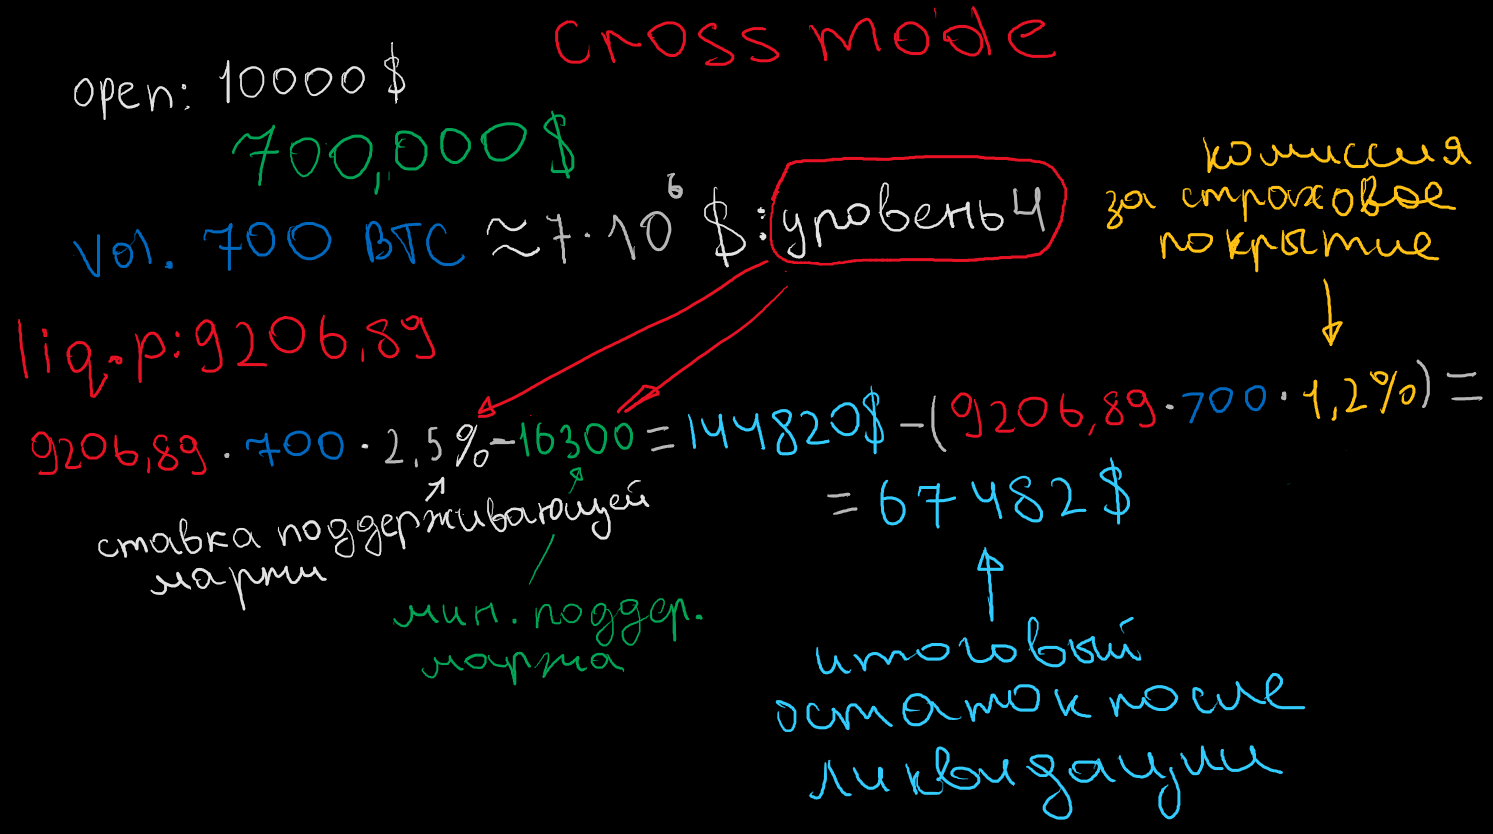 cross mode
open: 10000 $
700,000 $
vol. 700 BTC ≈ 7 · 10⁶ $ : уровень 4
liq.p: 9206,89
комиссия
за страховое
покрытие
9206,89 · 700 · 2,5% - 16300 = 144820$ - (9206,89 · 700 · 1,2%) =
= 67482 $
ставка поддерживающей
маржи
мин. поддер.
маржа
итоговый
остаток после
ликвидации